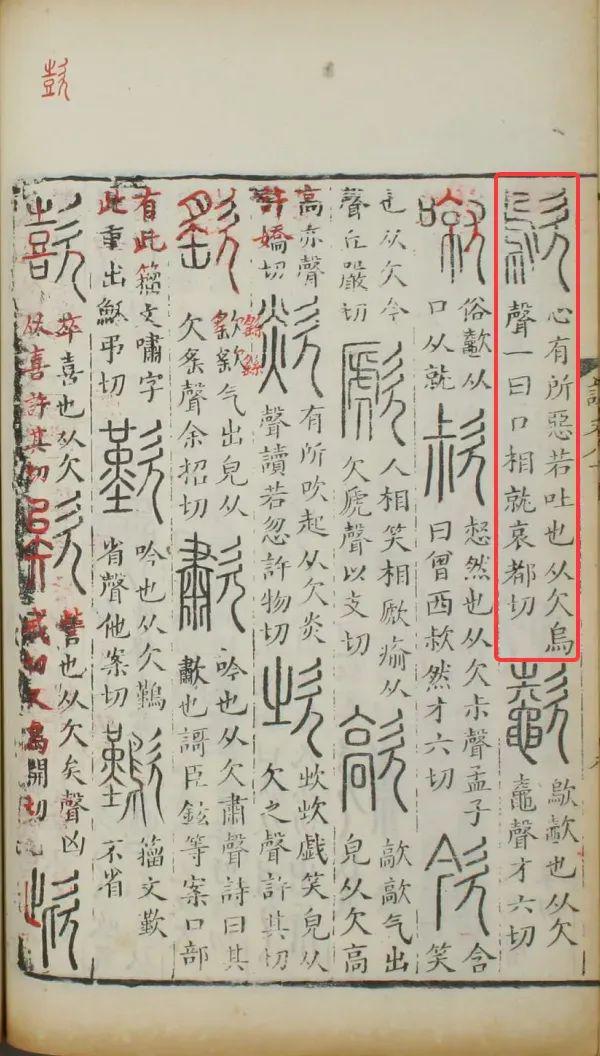 歖
歍 心有所惡若吐也从欠烏
聲一曰口相就哀都切
𣤶 歍𣤶也从欠
鼀聲才六切
噈 俗𣤶从
口从就
㰗 惄然也从欠尗聲孟子
曰曾西㰗然才六切
㰸 含
笑
也从欠今
聲丘嚴切
歋 人相笑相歋瘉从
欠虒聲以支切
歊 歊歊气出
皃从欠高
高亦聲
許嬌切
欻 有所吹起从欠炎
聲讀若忽許物切
㰞 㰞㰞戲笑皃从
欠之聲許其切
𣣳 𣣳𣣳气出皃从
欠䍃聲余招切
歗 吟也从欠肅聲詩曰其
歗也謌臣鉉等案口部
有此籒文嘯字
此重出穌弔切
歎 吟也从欠鸛
省聲他案切
籒文歎
不省
歖 卒喜也从欠
从喜許其切
欸 訾也从欠矣聲凶
戚切又焉開切
欪